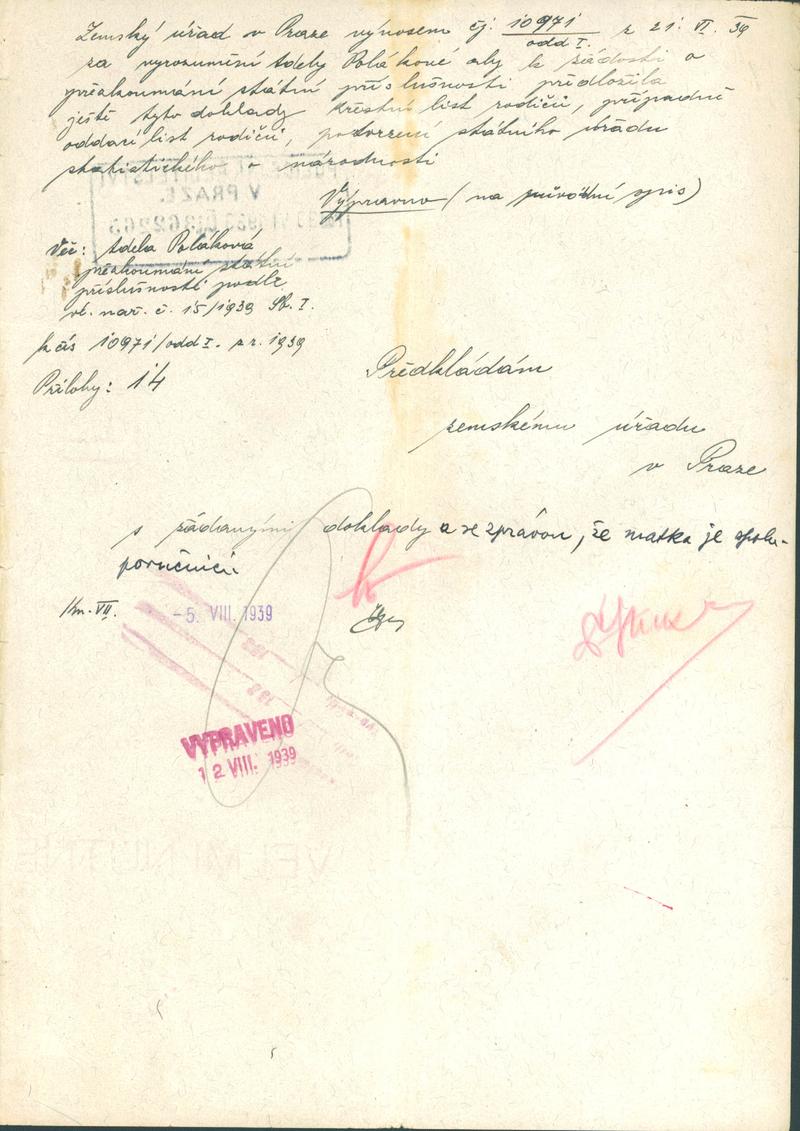 Zemský úřad v Praze výnosem čj. 10971/odd I. z 21. VI. 39
za vyrozumění Adely Polákové aby k žádosti o
přezkoumání státní příslušnosti předložila
ještě tyto doklady křestní list rodičů, případně
oddací list rodičů, potvrzení státního úřadu
statistického o národnosti
V PRAZE.
Vypraveno (na původní spis)
Věc: Adela Poláková
přezkoumání státní
příslušnosti podle
vl. nař. č. 15/1939 Sb. I.
k čís 10971/odd I. z r. 1939
Přílohy: 14
Předkládám
zemskému úřadu
v Praze
s žádanými doklady a se zprávou, že matka je spolu-
poručnicí.
-5. VIII. 1939
VYPRAVENO
12 VIII. 1939
VELMI NUTNÉ